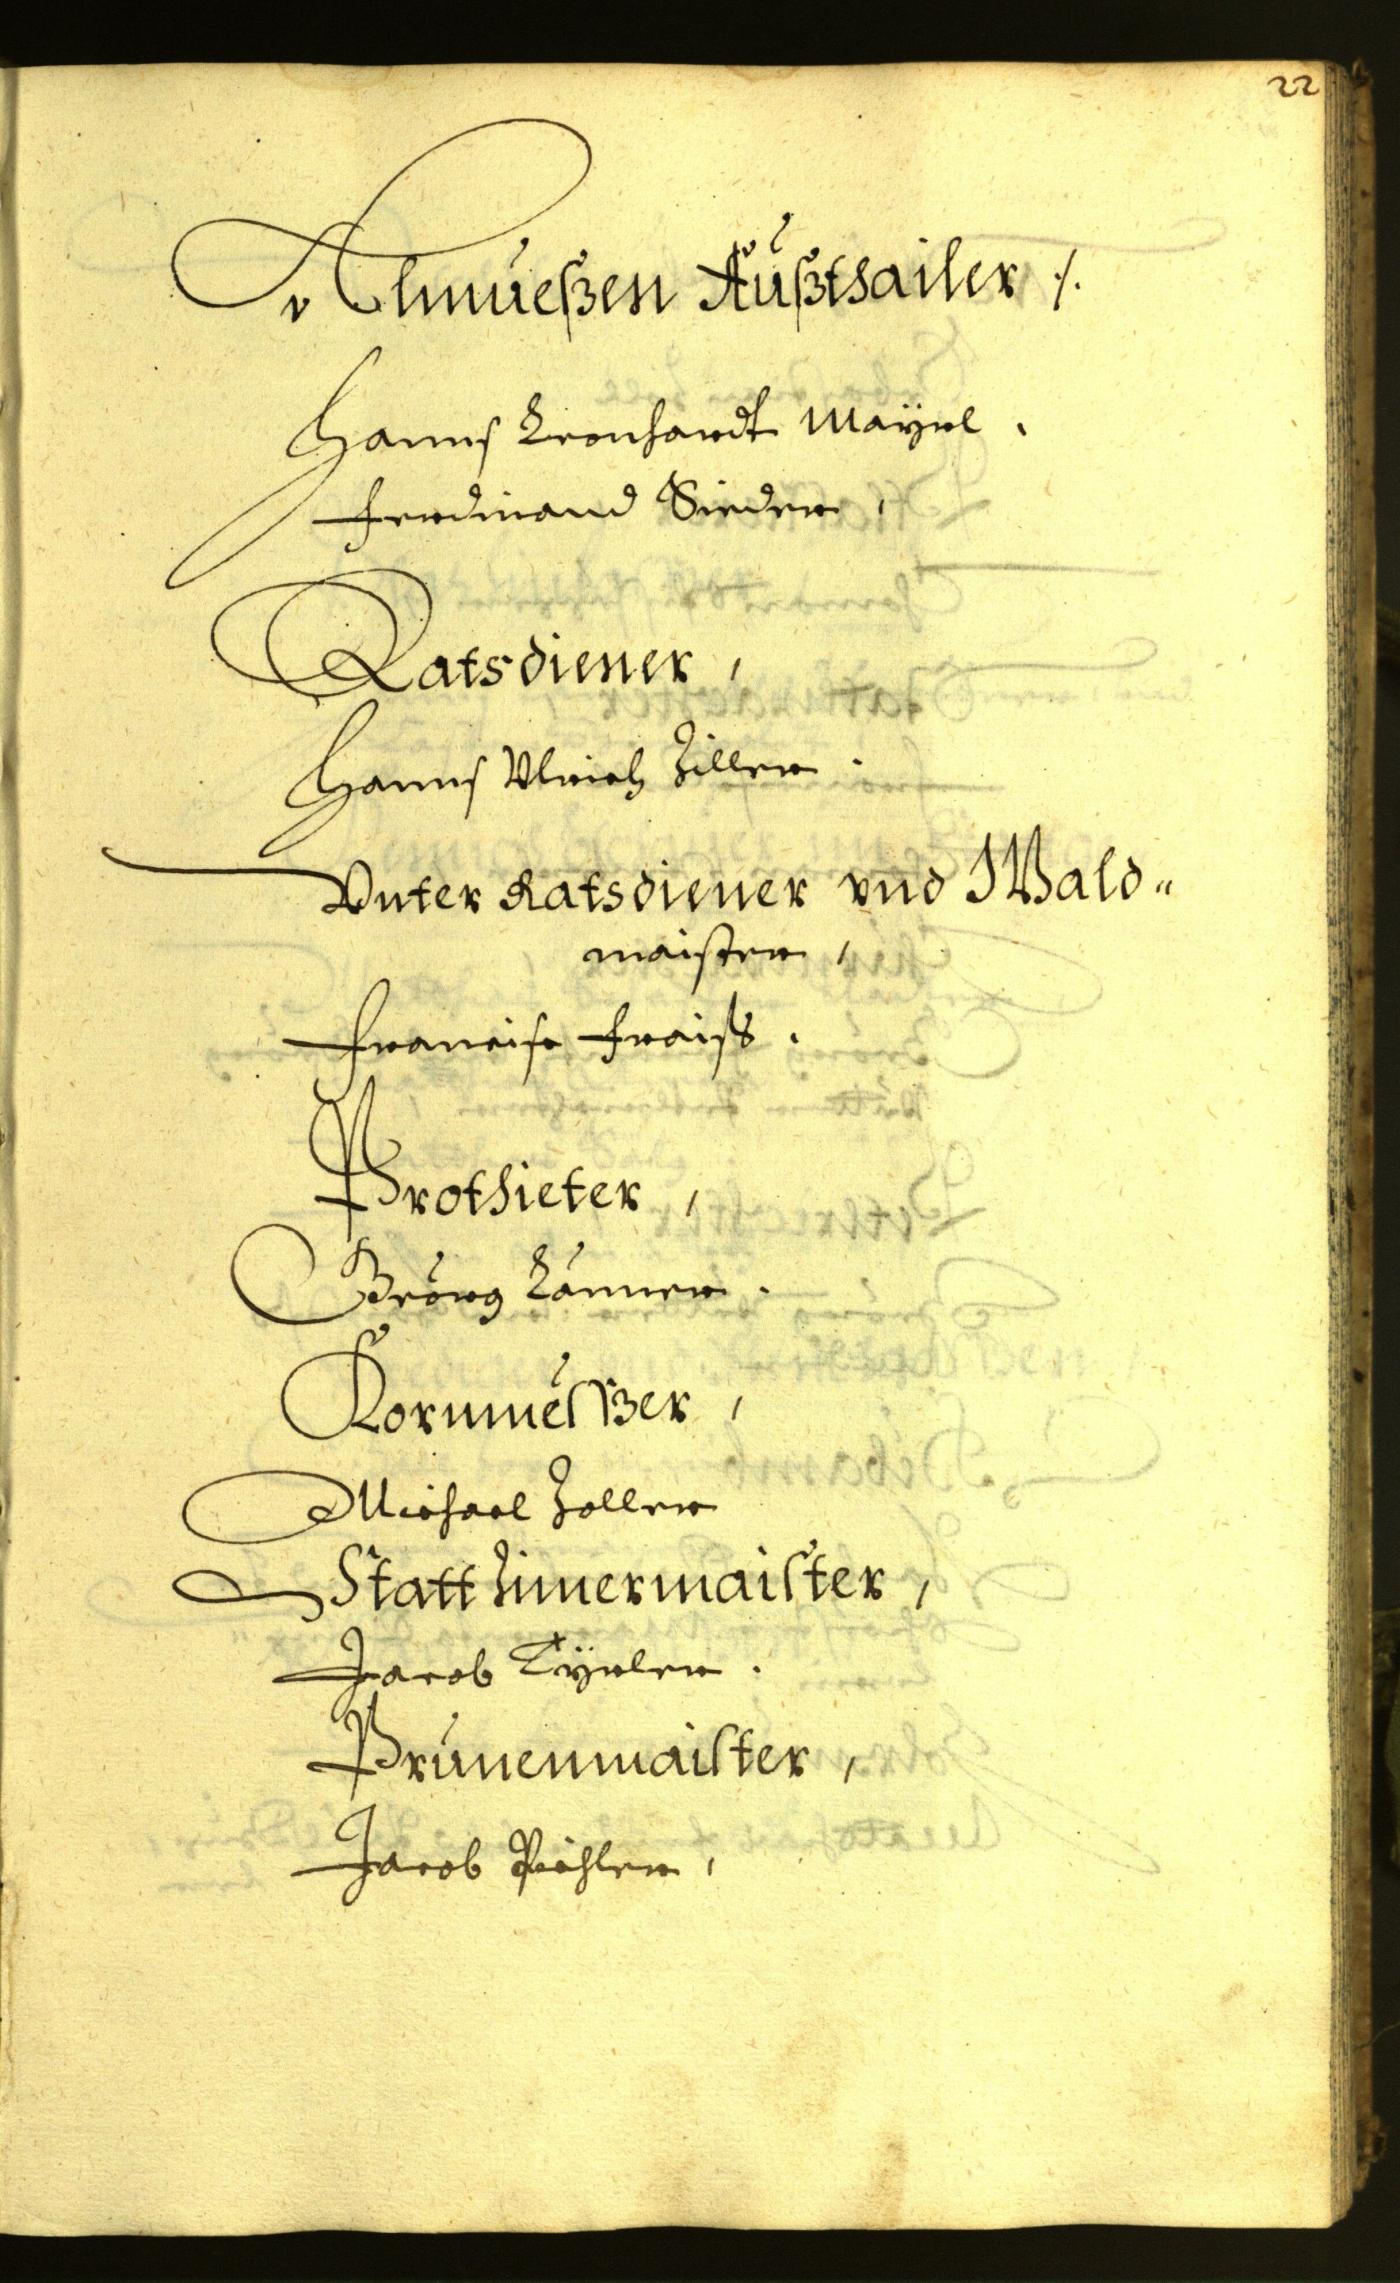 22
Almueßen Außthailer /.
Hanns Leonhardt Mayrl .
Ferdinand Sieder ,
Ratsdiener ,
Hanns Vlrich Ziller .
Vnter Ratsdiener vnd Wald„
maister ,
Francisc Fraiß .
Brothieter ,
Geörg
Kornmesßer ,
Michael Zoller
Statt Zimermaister ,
Jacob
Brunenmaister ,
Jacob Pichler ,